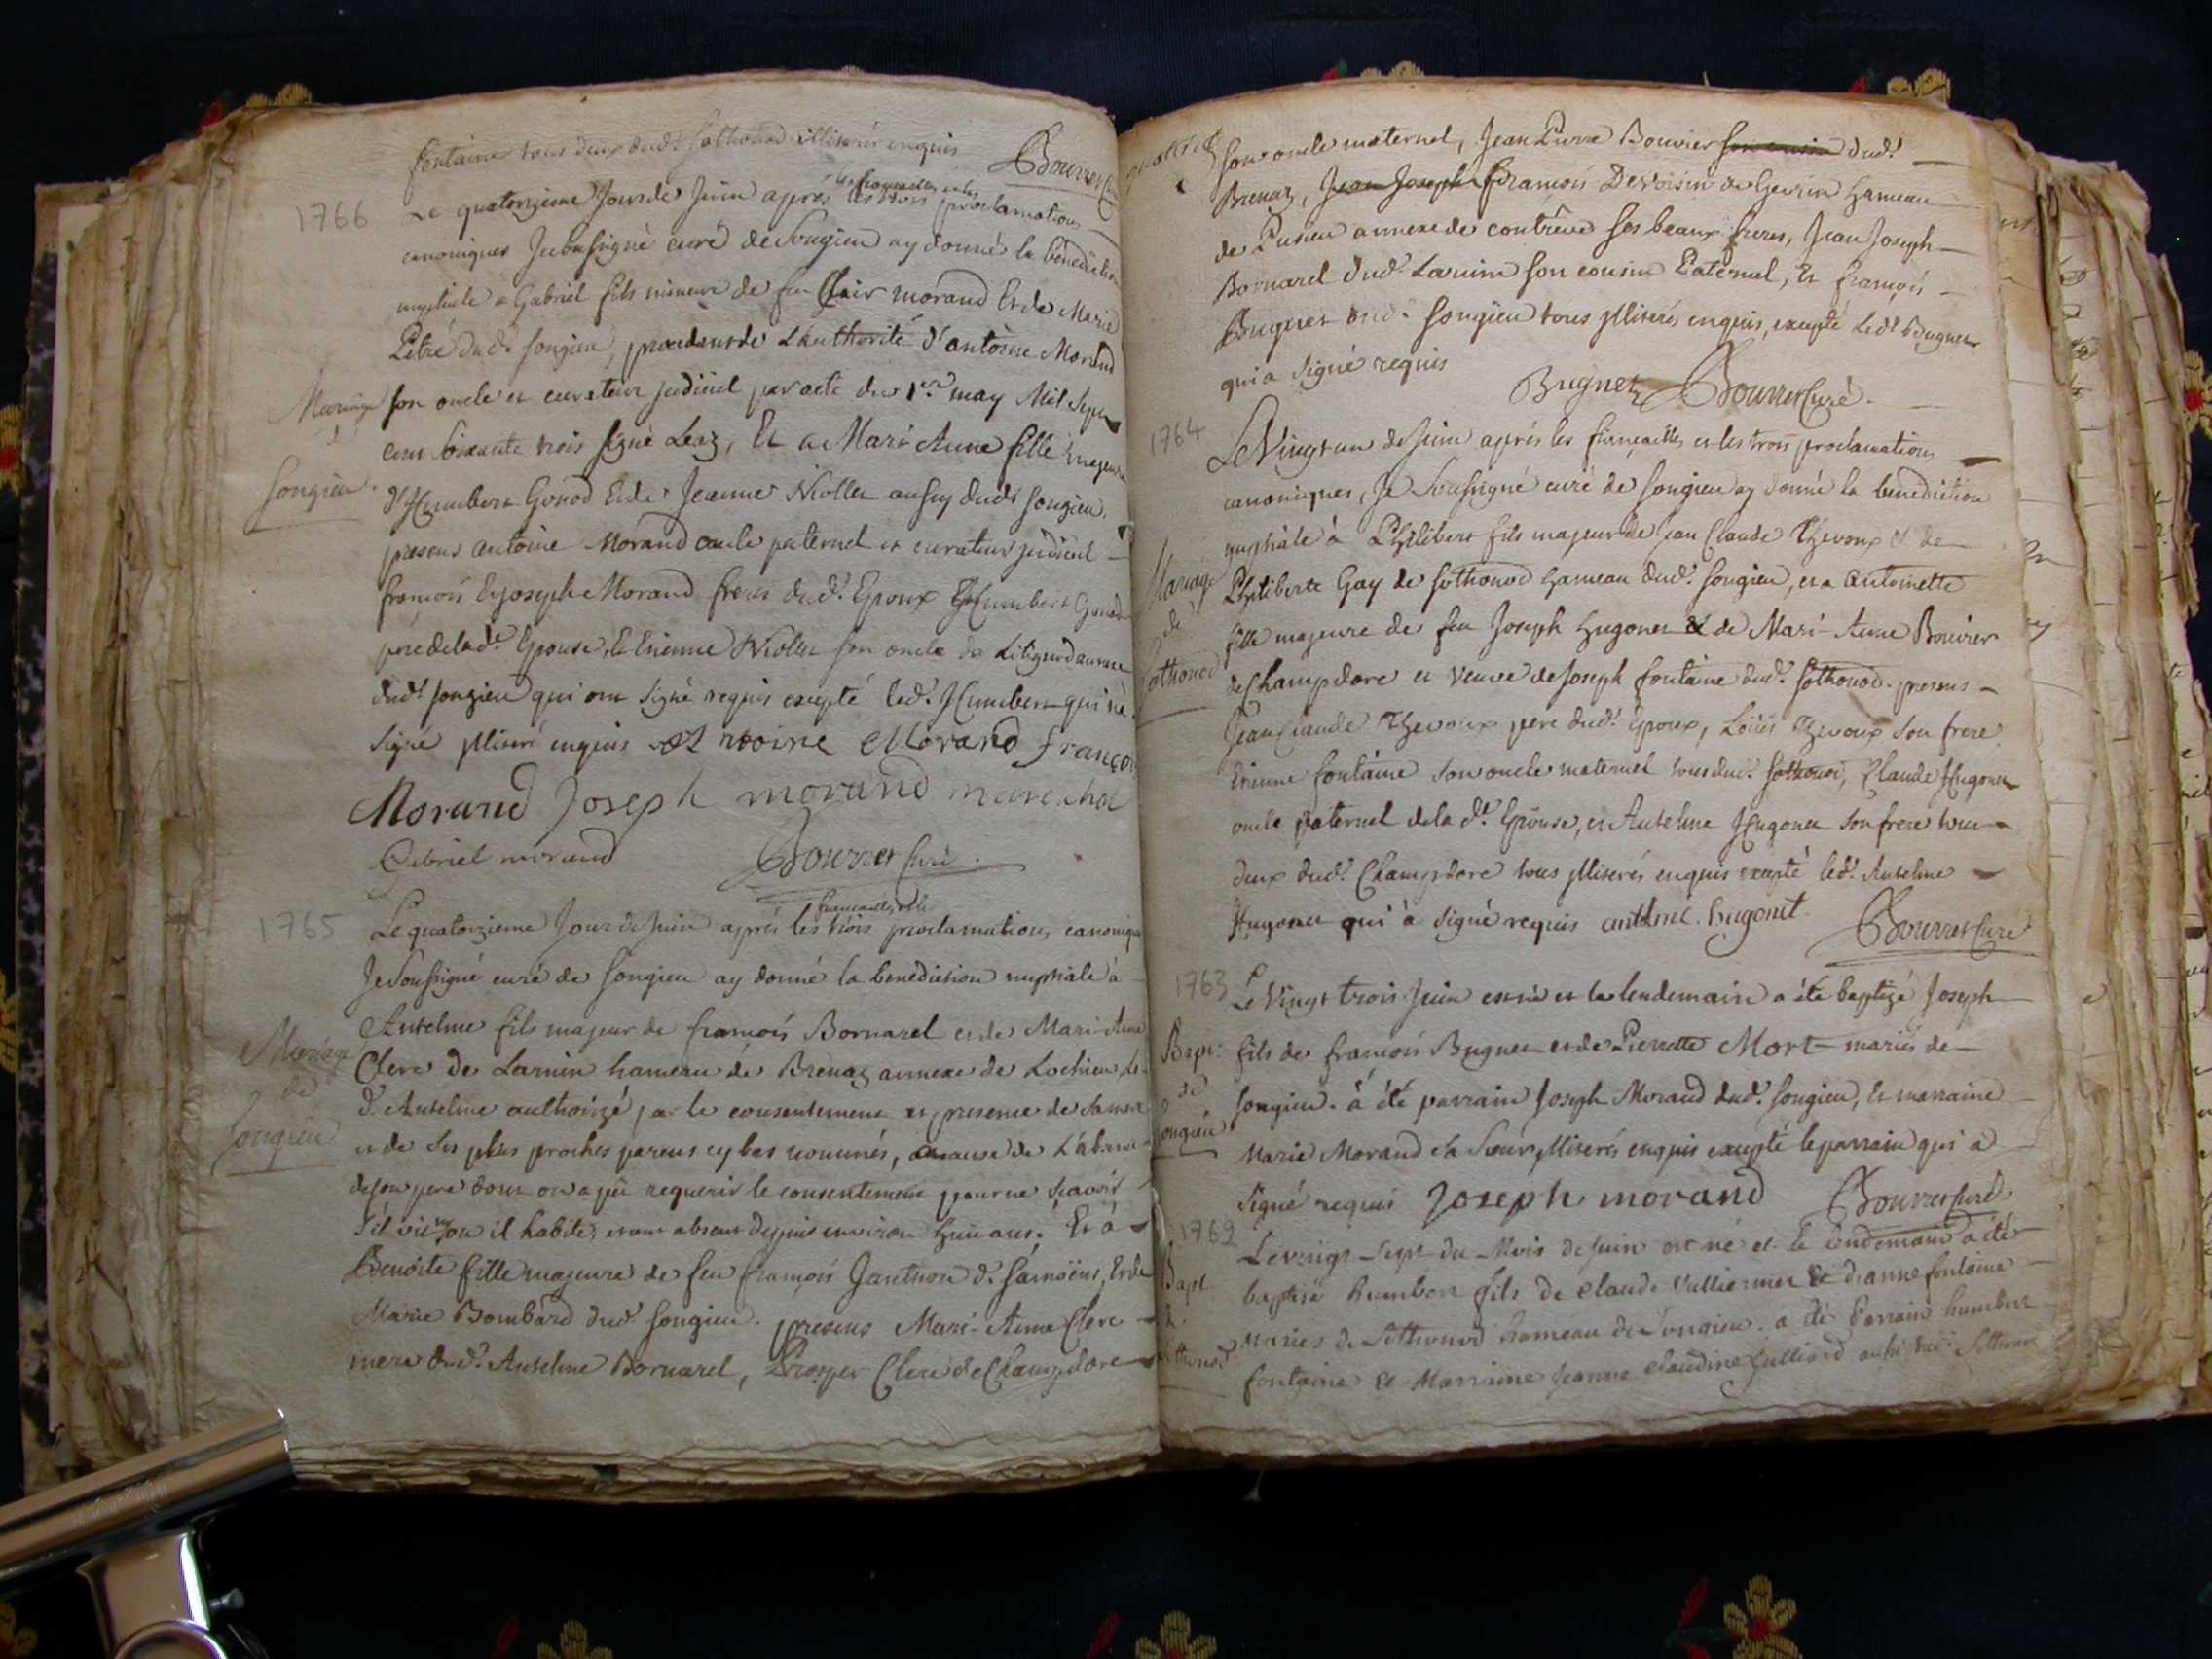 fontaine tous deux dud.t Sothonod illiterés enquis Bourret Curé
1766
Le quatorzieme Jour de Juin aprés les fiançailles et les trois proclamations
canoniques Je soussigné curé de Songieu ay donné la bénédiction
nuptiale a Gabriel fils mineur de feu Clair Morand Et de Marie
Pétré dud.t Songieu, procedant de L'authorité d'antoine Morand
Mariage
d
Songieu
son oncle et curateur judiciel par acte du 1.er may Mil Sept
cent soixante trois signé Leaz, Et a Marie Anne fille majeure
d'Humbert Gonod Et de Jeanne Niollet aussy dudt Songieu.
presens antoine Morand oncle paternel et curateur judiciel
françois Et Joseph Morand freres dud.t Epoux Humbert Gonod
pere de lad.te Epouse, Et Etienne Niollet son oncle
dud.t Songieu qui ont signé requis excepté led.t Humbert qui n'a
signé illiteré enquis Antoine Morand françois
Morand Joseph morand marechal
Gabriel morand Bourret Curé.
1765
Le quatorzieme Jour de Juin aprés les fiancailles et les trois proclamations canoniques
Je soussigné curé de Songieu ay donné la benediction nuptiale à
Mariage
de
Songieu
Anselme fils majeur de françois Bornarel et de Mari-Anne
Clerc de Larnin hameau de Brenaz annexe de Lochieu, Le
d.t Anselme authorizé par le consentement et presence de sa mere
et de ses plus proches parens cy bas nommés, a cause de L'absence
de son pere dont on a pû requerir le consentement pour ne sçavoir
s'il vit, ou il habite, etant absent depuis environ huit ans. Et à
Benoite fille majeure de feu françois Janthon d. Samoëns, Et de
Marie Bombard dud.t Songieu. presens Mari-Anne Clerc
mere dud.t Anselme Bornarel, Prosper Clerc de Champdore
son oncle maternel, Jean Pierre Bouvier son cousin dud.t
Brenaz, Jean Joseph françois Devoisin de Gevrin hameau
de Pusieu annexe de contrêve ses beaux freres, Jean Joseph
Bornarel dud.t Larnin son cousin Paternel, Et françois
Bugnet dud.t Songieu tous illiterés enquis, excepté led.t Bugnet
qui a signé requis
Bugnet Bourret Curé.
1764
Le Vingt un de Juin aprés les fiançailles et les trois proclamations
canoniques, Je Soussigné curé de Songieu ay donné la benediction
nuptiale à Philibert fils majeur de Jean Claude Thevoux et de
Mariage
de
Sothonod
Philiberte Gay de Sothonod hameau dud.t Songieu, et a Antoinette
fille majeure de feu Joseph Hugonet & de Mari-Anne Bouvier
de Champdore et Veuve de Joseph fontaine dud.t Sothonod. presens
Jean Claude Thevoux pere dud.t Epoux, Loüis Thevoux son frere
Etienne fontaine son oncle maternel tous dud.t Sothonod, Claude Hugonet
oncle paternel de la d.te Epouse, et Anselme Hugonet son frere tous
deux dud.t Champdore tous illiterés enquis excepté led.t Anselme
Hugonet qui à signé requis Bourret Curé
1763
Le Vingt trois Juin est né et le lendemain a été baptizé Joseph
Bapt.
de
Songieu
fils de françois Bugnet et de Pierrette Mort mariés de
Songieu. a été parrain Joseph Morand dud.t Songieu, Et marraine
Marie Morand sa soeur illiterés enquis excepté le parrain qui a
signé requis Joseph morand Bourret Curé
1762
Le vingt-sept du Mois de Juin est né et le lendemain a été
Bapt
Sothonod
baptisé humbert fils de Claude Vulliermet & dianne fontaine
mariés de Sothonod hameau de Songieu. a été Parrain humbert
fontaine et Marraine Jeanne Claudine aussi dud.t Sothonod